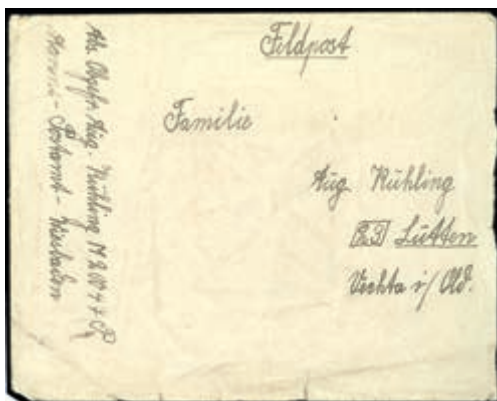 Feldpost
Familie
Aug. Rühling
(23) Lutten
Vechta i/Old.
Abs. Obgefr. Aug. Rühling M
Marine-Postamt-Wiesbaden